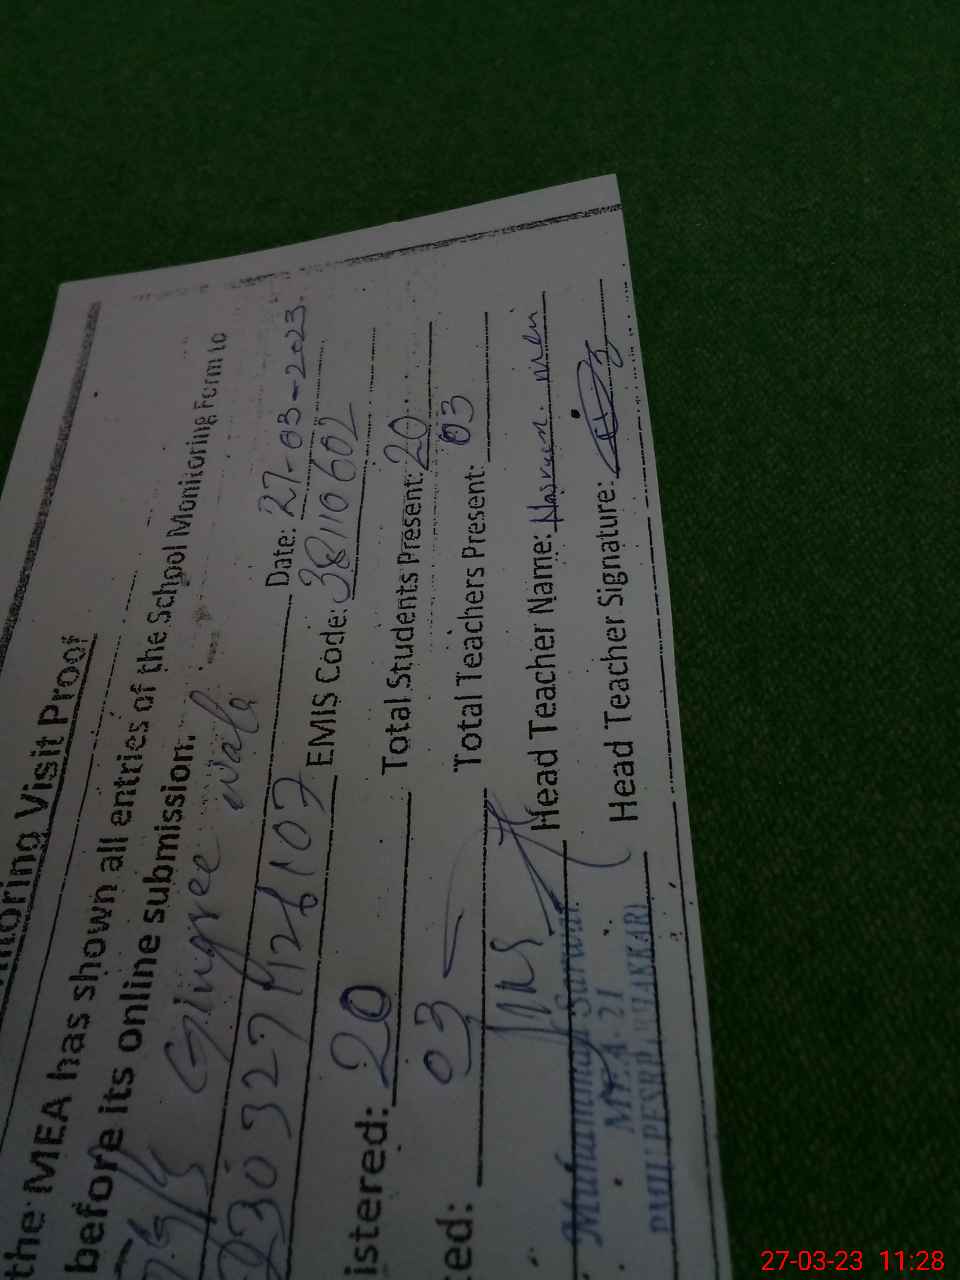 Monitoring Visit Proof
the MEA has shown all entries of the School Monitoring Form to
before its online submission.
Gingree wala Date: 27-03-2023.
03027426107 EMIS Code: 38110602
istered: 20 Total Students Present: 20
ted: 03 Total Teachers Present: 03
Head Teacher Name: Nasreen
Muhammad Sarwar
MEA-21
Head Teacher Signature:
PMIU PESRP, BHAKKAR
27-03-23 11:28